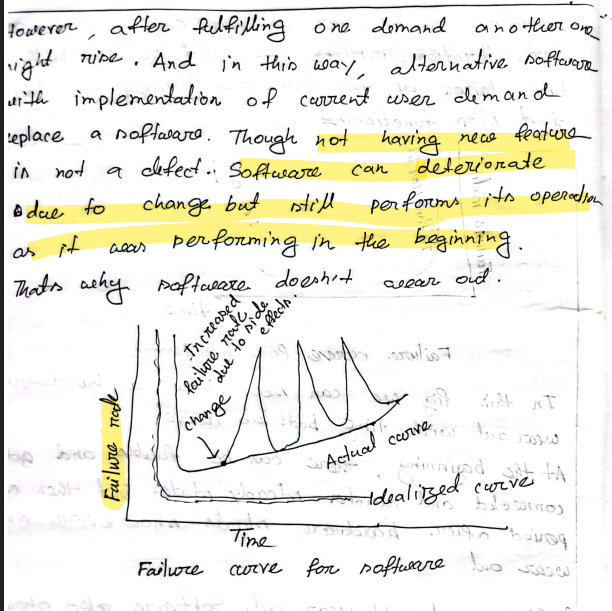 However, after fulfilling one demand another one
might rise. And in this way, alternative software
with implementation of current user demand
replace a software. Though not having new feature
is not a defect. Software can deteriorate
due to change but still performs its operation
as it was performing in the beginning.
Thats why software doesn't wear out.
Increased
failure rate
due to side
effects.
change
Failure rate
Actual curve
Idealized curve
Time
Failure curve for software